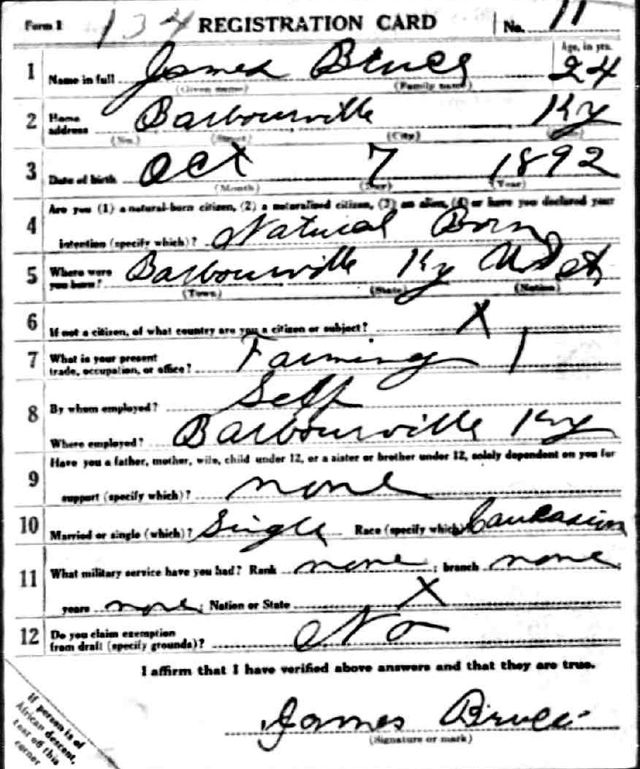 Form 1 134 REGISTRATION CARD No. 11
1 Name in full James Bruce Age, in yrs. 24
(Given name) (Family name)
2 Home address Barbourville Ky
(No.) (Street) (City) (State)
3 Date of birth Oct 7 1892
(Month) (Day) (Year)
4 Are you (1) a natural-born citizen, (2) a naturalized citizen, (3) an alien, (4) or have you declared your
intention (specify which)? Natural Born
5 Where were you born? Barbourville Ky
(Town) (State) (Nation)
6 If not a citizen, of what country are you a citizen or subject? X
7 What is your present trade, occupation, or office? Farming 1
8 By whom employed? Self
Where employed? Barbourville Ky
9 Have you a father, mother, wife, child under 12, or a sister or brother under 12, solely dependent on you for
support (specify which)? none
10 Married or single (which)? Single Race (specify which) Caucasian
11 What military service have you had? Rank none ; branch none ;
years none ; Nation or State X
12 Do you claim exemption from draft (specify grounds)? No
I affirm that I have verified above answers and that they are true.
James Bruce
(Signature or mark)
If person is of
African descent,
tear off this
corner